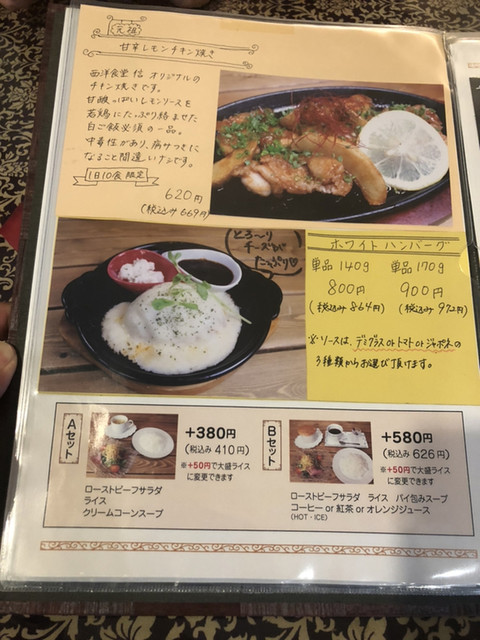 元祖
甘辛レモンチキン焼き
西洋食堂 信 オリジナルの
チキン焼きです。
甘酸っぱいレモンソースを
若鶏にたっぷり絡ませた
白ご飯必須の一品。
中毒性があり、病みつきに
なること間違いナシです。
1日10食 限定
620円
(税込み 669円)
とろ〜り
チーズが
たっぷり♡
ホワイト ハンバーグ
単品 140g 単品 170g
800円 900円
(税込み 864円) (税込み 972円)
※ソースは、デミグラス or トマト or ジャポネの
3種類からお選び頂けます。
Aセット
+380円
(税込み 410円)
※+50円で大盛ライス
に変更できます
ローストビーフサラダ
ライス
クリームコーンスープ
Bセット
+580円
(税込み 626円)
※+50円で大盛ライス
に変更できます
ローストビーフサラダ ライス パイ包みスープ
コーヒー or 紅茶 or オレンジジュース
(HOT・ICE)